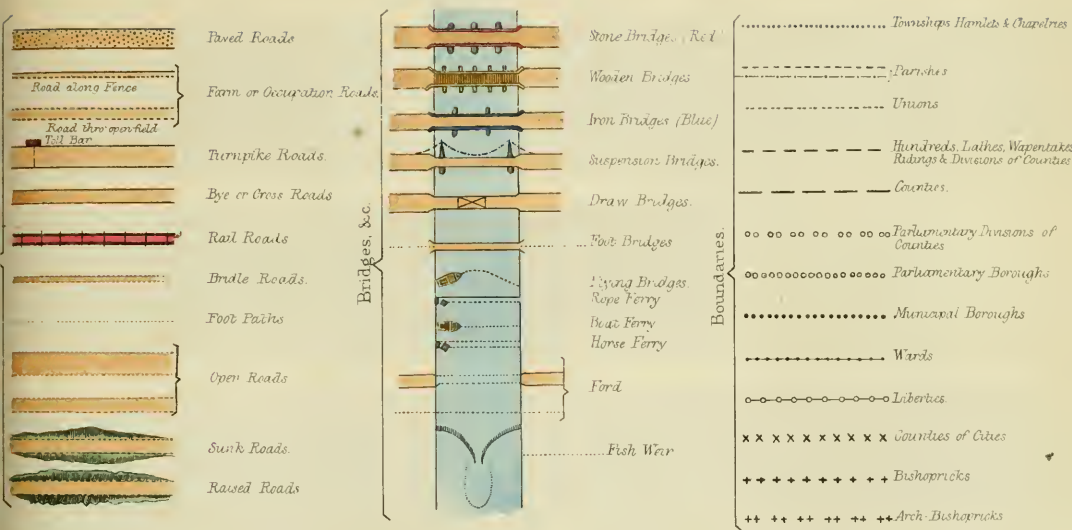 Paved Roads
Road along Fence
Farm or Occupation Roads.
Road thro' open field
Toll Bar
Turnpike Roads.
Bye or Cross Roads
Rail Roads
Bridle Roads.
Foot Paths
Open Roads
Sunk Roads.
Raised Roads
Bridges, &c.
Stone Bridge. Red
Wooden Bridges
Iron Bridges (Blue)
Suspension Bridges.
Draw Bridges.
Foot Bridges
Flying Bridges.
Rope Ferry
Boat Ferry
Horse Ferry
Ford
Fish Weir
Boundaries.
Townships Hamlets & Chapelries
Parishes
Unions
Hundreds, Lathes, Wapentakes
Ridings & Divisions of Counties
Counties.
Parliamentary Divisions of
Counties
Parliamentary Boroughs
Municipal Boroughs
Wards
Liberties.
Counties of Cities
Bishopricks
Arch-Bishopricks